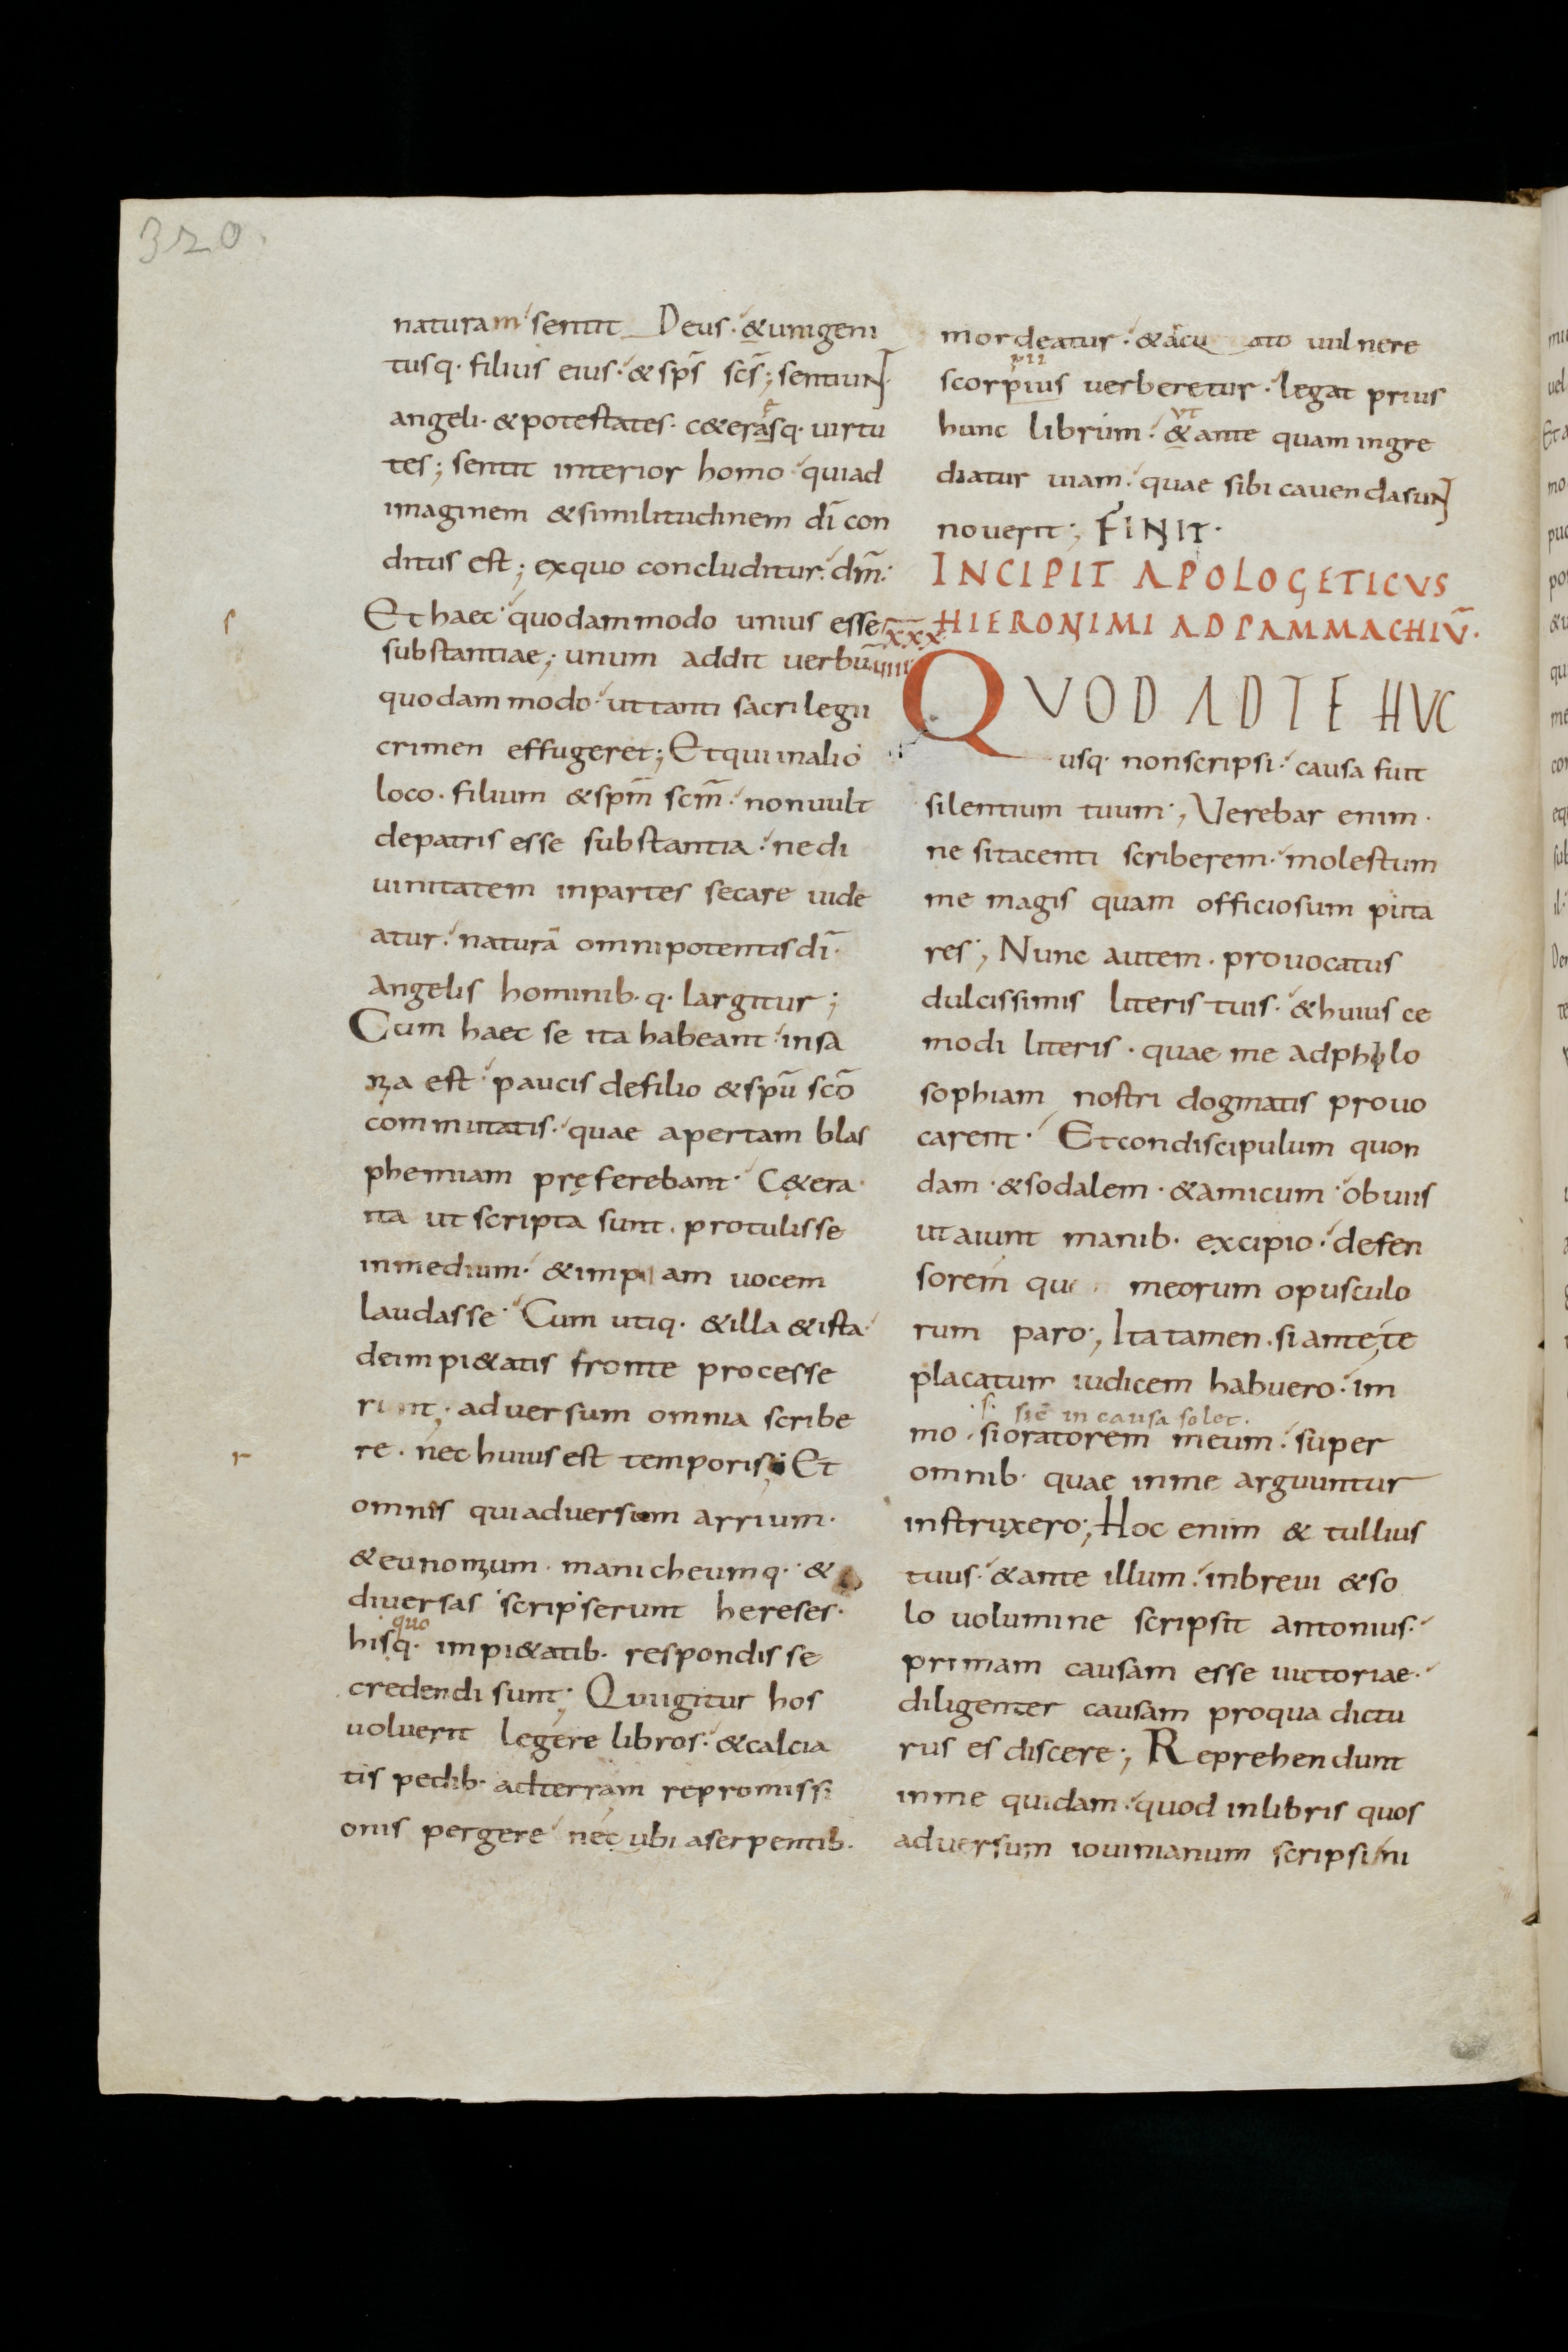 320.
naturam sentit Deus · & unigeni
tusq · filius eius · & sp̄s sc̄s ; sentiunt
angeli · & potestates · c&erasq · uirtu
e
tes ; sentit interior homo quiad
imaginem & similitudinem dī con
ditus est ; exquo concluditur · dm̄ ·
Et haec quodammodo unius esse
substantiae ; unum addit uerbū
quodammodo ut tanti sacrilegii
crimen effugeret ; Et qui inalio
loco · filium & spm̄ scm̄ · nonuult
depatris esse substantia · ne di
uinitatem inpartes secare uide
atur · naturā omnipotentis dī ·
angelis hominib · q · largitur ;
Cum haec se ita habeant insa
nia est paucis defilio & spū scō
commutatis · quae apertam blas
phemiam pręferebant · C&era
ita ut scripta sunt · protulisse
inmedium · & impiam uocem
laudasse · Cum utiq · & illa & ista
deimpi&atis fronte processe
runt ; aduersum omnia scribe
re · nec huius est temporis ; Et
omnis qui aduersum arrium ·
& eunomium · manicheumq · &
diuersas scripserunt hereses ·
quo
hisq · impi&atib · respondisse
credendi sunt ; Qui igitur hos
uoluerit legere libros · & calcia
tis pedib · adterram repromissi
onis pergere nec ubi aserpentib ·
mordeatur · & acu ato uulnere
pii
scorpius uerberetur · legat prius
ut
hunc librum · & ante quam ingre
diatur uiam · quae sibi cauenda sunt
nouerit ; FINIT ·
INCIPIT APOLOGETICUS
HIERONIMI AD PAMMACHIŪ ·
xxx
uiiii
QUOD AD TE HUC
usq · nonscripsi · causa fuit
silentium tuum ; Verebar enim ·
ne sitacenti scriberem · molestum
me magis quam officiosum puta
res ; Nunc autem · prouocatus
dulcissimis literis tuis · & huius ce
modi literis · quae me adphilo
sophiam nostri dogmatis prouo
carent · Et condiscipulum quon
dam · & sodalem · & amicum obuiis
ut aiunt manib · excipio · defen
sorem que meorum opusculo
rum paro ; Ita tamen · si ante te
placatum iudicem habuero · im
si sic in causa solet ·
mo · si oratorem meum · super
omnib · quae inme arguuntur
instruxero ; Hoc enim & tullius
tuus · & ante illum · inbreui & so
lo uolumine scripsit antonius ·
primam causam esse uictoriae ·
diligenter causam proqua dictu
rus es discere ; Reprehendunt
inme quidam · quod inlibris quos
aduersum iouinianum scripsi ni